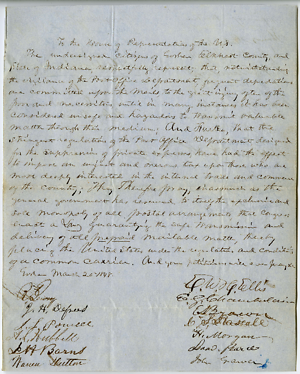 To the House of Representatives of the U.S.
The undersigned Citizens of Goshen Elkhart County, and
State of Indiana respectfully represent that notwithstanding
the vigilance of the Post Office Department frequent depredations
are committed upon the Mails to the great injury often of the
poor and necessitous until in many instances it has been
considered unsafe and hazardous to transmit valuable
matter through this medium; And further, that the
stringent regulations of the Post Office Department designed
in the suppression of private expresses have had the effect
to impose an unjust and onerous tax upon those who are
most deeply interested in the internal trade and commerce
of the country; They Therefore pray, inasmuch as the
general government has assumed to itself the exclusive and
sole monopoly of all postal arrangements that Congress
enact a Law Guarantying the safe transmission and
delivery of all prepaid mailable matter thereby
placing the United States under the restraints and conditions
of a common carrier. And your petitioners
Goshen March 20
J. H. Defrees
Hubbell
J H Barns
E. G. Chamberlain
H. Morgan
John